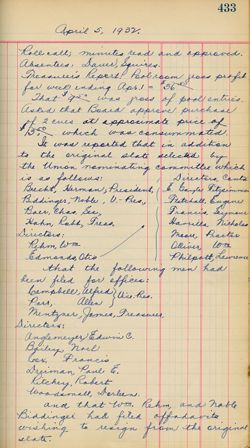 433
April 5, 1932.
Roll call, minutes read and approved.
Absentees, Dauel, Squires.
Treasurer's Report: Poolroom gross profit
for week ending Apr. 1 = $56
That $9 was gross of pool entries
Asked that Board approve purchase
of 2 cues at approximate price of
$3.00 which was consummated.
It was reported that in addition
to the original slate selected by
the Union nominating committee which
is as follows: Directors Contd
Becht, Herman, President, E. Gayle Fitzsimmon
Biddinger, Noble, V-Pres, Fletchall, Eugene
Baer, Chas., Sec, Francis, Seymour
Hahn, Robt, Treas. Hamilla, Nicholas
Directors: Moore, Proctor
Rehm, Wm Oliver, Wm
Edmonds, Otis Philpott, Lawrence
that the following men had
been filed for offices:
Campbell, Alfred } Vic. Pres.
Parr, Allen
Mentzner, James, Treasurer
Directors:
Anglemeyer, Edwin C.
Bailey, Noel
Cox, Francis
Dryiman, Paul E.
Ritchey, Robert
Woodsmall, Dorlan.
and that Wm. Rehm, and Noble
Biddinger had filed affidavits
wishing to resign from the original
slate.